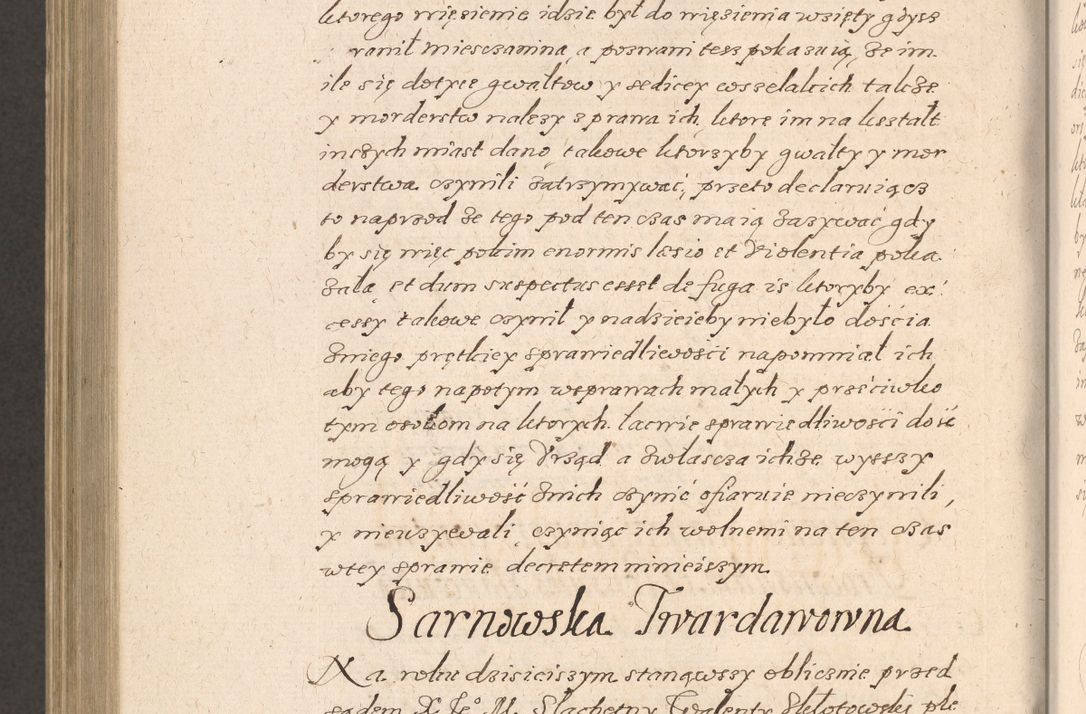 ktorego więsienie idzie był do więzienia wzięty gdysz
ranił miesczanina, a pozwani tesz pokazuią, że im
ile się dotyce gwałtow y sedicey wszelakich także
y morderstw nalezy zprawa ich, ktore im na kształt
inszych miast dano, takowe ktorzyby gwałty y mor
derstwa czynili zatrzymywać, przeto declaruiącz
to naprzod że tego pod ten czas maią zazywac gdy
by się więc pokim enormis læsio et Violentia poka
zała, et dum suspectus esset de fuga is ktoryby ex
cessy takowe czynił y nadzieieby niebyło dościa
zniego prętkiey sprawiedliwości napomniał ich
aby tego napotym wsprawach małych y przeciwko
tym osobom na ktorych łacwie sprawiedliwości dość
mogą y gdy się Vrząd a zwlascza ichże wyszszy
sprawiedliwość znich czynić ofiaruie nieczynili,
y nieuzywali, czyniąc ich wolnemi na ten czas
wtey sprawie decretem ninieiszym
Sarnowska Twardawowna
Na roku dzisieiszym stanąwszy oblicznie przed
sądem X Je° M. Slachetny Walenty Skłotowski ple